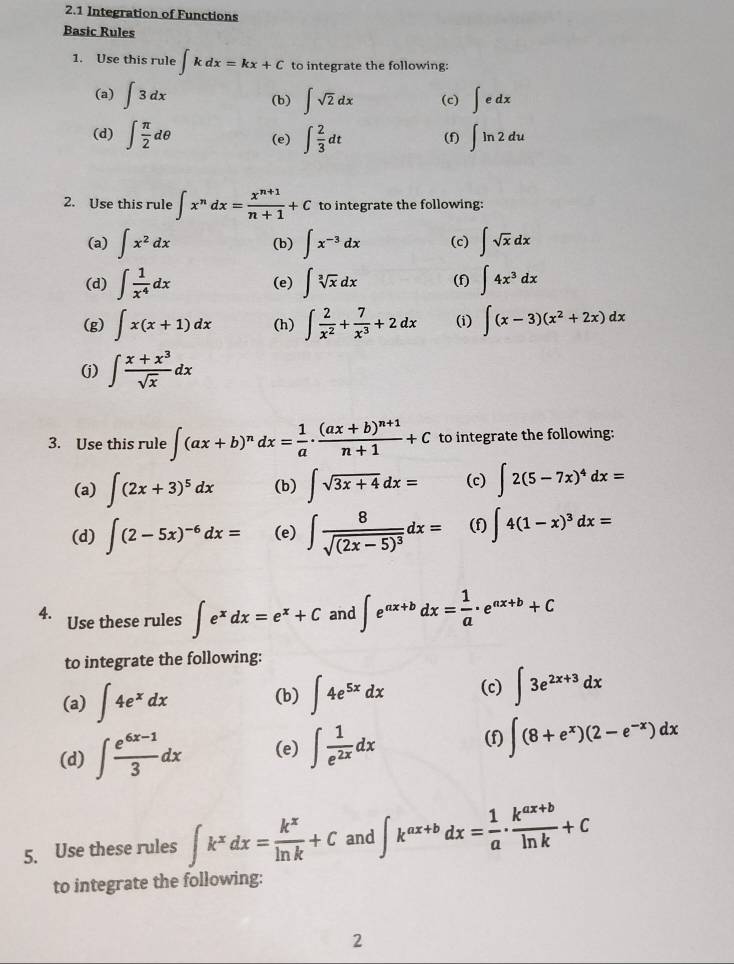 2.1 Integration of Functions
Basic Rules
1. Use this rule ∫ k dx = kx + C to integrate the following:
(a) ∫ 3 dx (b) ∫ √2 dx (c) ∫ e dx
(d) ∫ π/2 dθ (e) ∫ 2/3 dt (f) ∫ ln 2 du
2. Use this rule ∫ xⁿ dx = xⁿ⁺¹/(n + 1) + C to integrate the following:
(a) ∫ x² dx (b) ∫ x⁻³ dx (c) ∫ √x dx
(d) ∫ 1/x⁴ dx (e) ∫ ∛x dx (f) ∫ 4x³ dx
(g) ∫ x(x + 1) dx (h) ∫ 2/x² + 7/x³ + 2 dx (i) ∫ (x − 3)(x² + 2x) dx
(j) ∫ (x + x³)/√x dx
3. Use this rule ∫ (ax + b)ⁿ dx = 1/a · (ax + b)ⁿ⁺¹/(n + 1) + C to integrate the following:
(a) ∫ (2x + 3)⁵ dx (b) ∫ √(3x + 4) dx = (c) ∫ 2(5 − 7x)⁴ dx =
(d) ∫ (2 − 5x)⁻⁶ dx = (e) ∫ 8/√((2x − 5)³) dx = (f) ∫ 4(1 − x)³ dx =
4. Use these rules ∫ eˣ dx = eˣ + C and ∫ eᵃˣ⁺ᵇ dx = 1/a · eᵃˣ⁺ᵇ + C
to integrate the following:
(a) ∫ 4eˣ dx (b) ∫ 4e⁵ˣ dx (c) ∫ 3e²ˣ⁺³ dx
(d) ∫ e⁶ˣ⁻¹/3 dx (e) ∫ 1/e²ˣ dx (f) ∫ (8 + eˣ)(2 − e⁻ˣ) dx
5. Use these rules ∫ kˣ dx = kˣ/ln k + C and ∫ kᵃˣ⁺ᵇ dx = 1/a · kᵃˣ⁺ᵇ/ln k + C
to integrate the following:
2